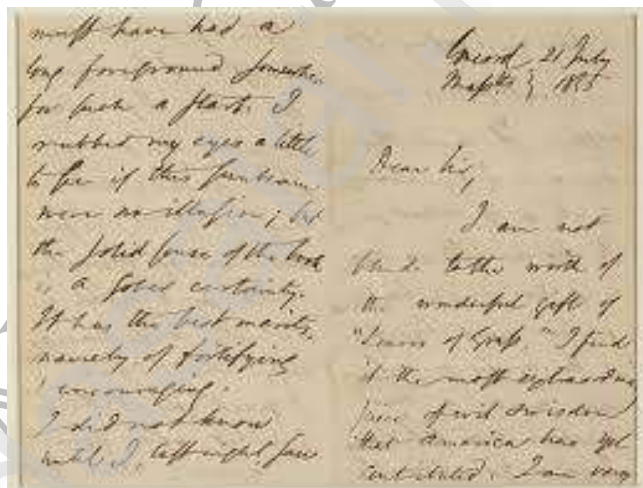 must have had a
long foreground somewhere,
for such a start. I
rubbed my eyes a little
to see if this sunbeam
were no illusion; but
the solid sense of the book
is a sober certainty.
It has the best merits,
namely, of fortifying
& encouraging.
I did not know
until I, last night, saw
Concord 21 July
Massts } 1855
Dear Sir,
I am not
blind to the worth of
the wonderful gift of
"Leaves of Grass." I find
it the most extraordinary
piece of wit & wisdom
that America has yet
contributed. I am very